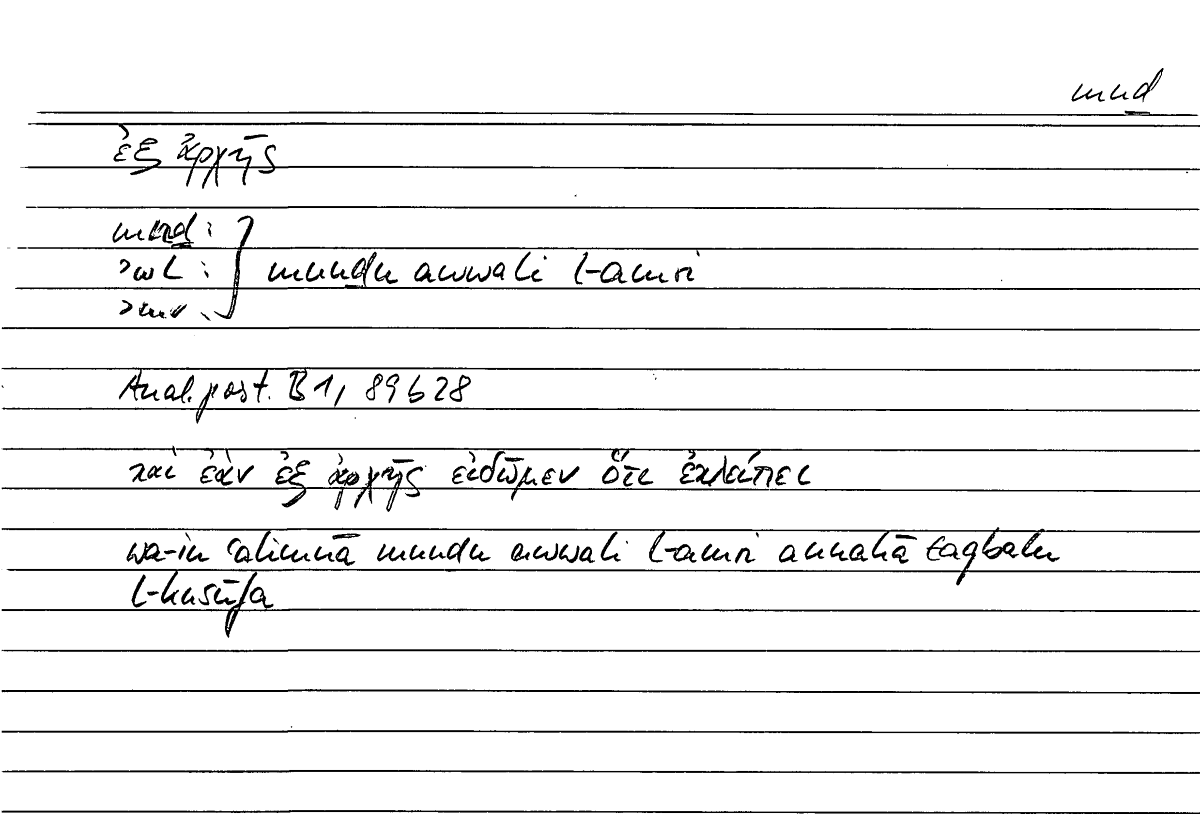 mnḏ
ἐξ ἀρχῆς
mnḏ :
ʾwl : } munḏu awwali l-amri
ʾmr :
Anal. post. B 1, 89 b 28
καὶ ἐὰν ἐξ ἀρχῆς εἰδῶμεν ὅτι ἐκλείπει
wa-in ʿalimnā munḏu awwali l-amri annahā taqbalu
l-kusūfa